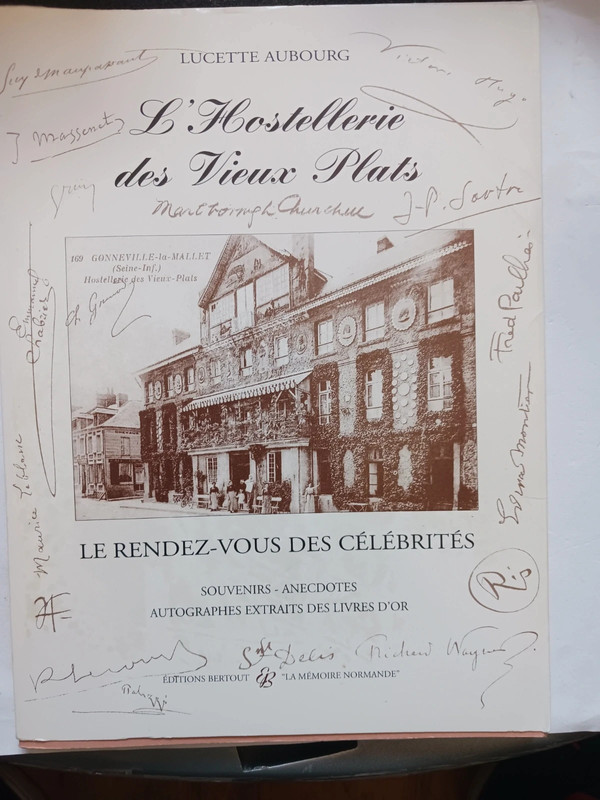 LUCETTE AUBOURG
Guy de Maupassant
Victor Hugo
J Massenet
L'Hostellerie
des Vieux Plats
Marlborough Churchill
J-P. Sartre
169 GONNEVILLE-la-MALLET
(Seine-Inf.)
Hostellerie des Vieux-Plats
Emmanuel
Chabrier
Fred Pailhès
Maurice Leblanc
Yvonne
LE RENDEZ-VOUS DES CÉLÉBRITÉS
SOUVENIRS - ANECDOTES
AUTOGRAPHES EXTRAITS DES LIVRES D'OR
St Delis
Richard Wagner
ÉDITIONS BERTOUT EB "LA MÉMOIRE NORMANDE"